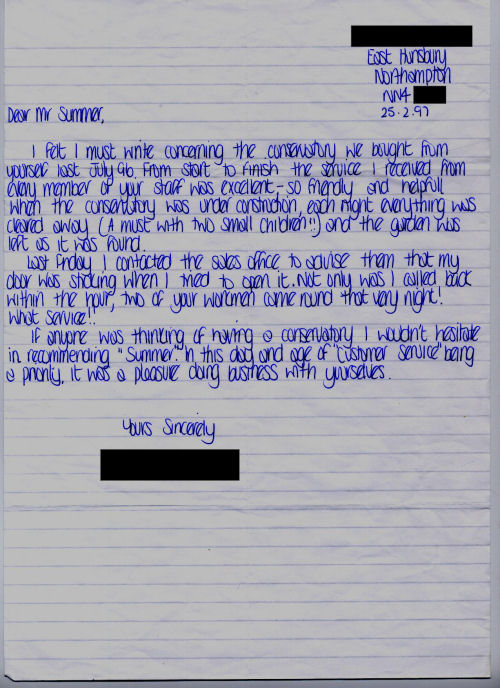 East Hunsbury
Northampton
NN4
25.2.97
Dear Mr Summer,
I felt I must write concerning the conservatory we bought from
yourself last July 96. From start to finish the service I received from
every member of your staff was excellent - so friendly and helpful
When the conservatory was under construction, each night everything was
cleared away (A must with two small children!!) and the garden was
left as it was found.
Last Friday I contacted the sales office to advise them that my
door was sticking when I tried to open it. Not only was I called back
within the hour, two of your workmen came round that very night!
What service!!
If anyone was thinking of having a conservatory I wouldn't hesitate
in recommending "Summer". In this day and age of "customer service" being
a priority, it was a pleasure doing business with yourselves.
Yours Sincerely